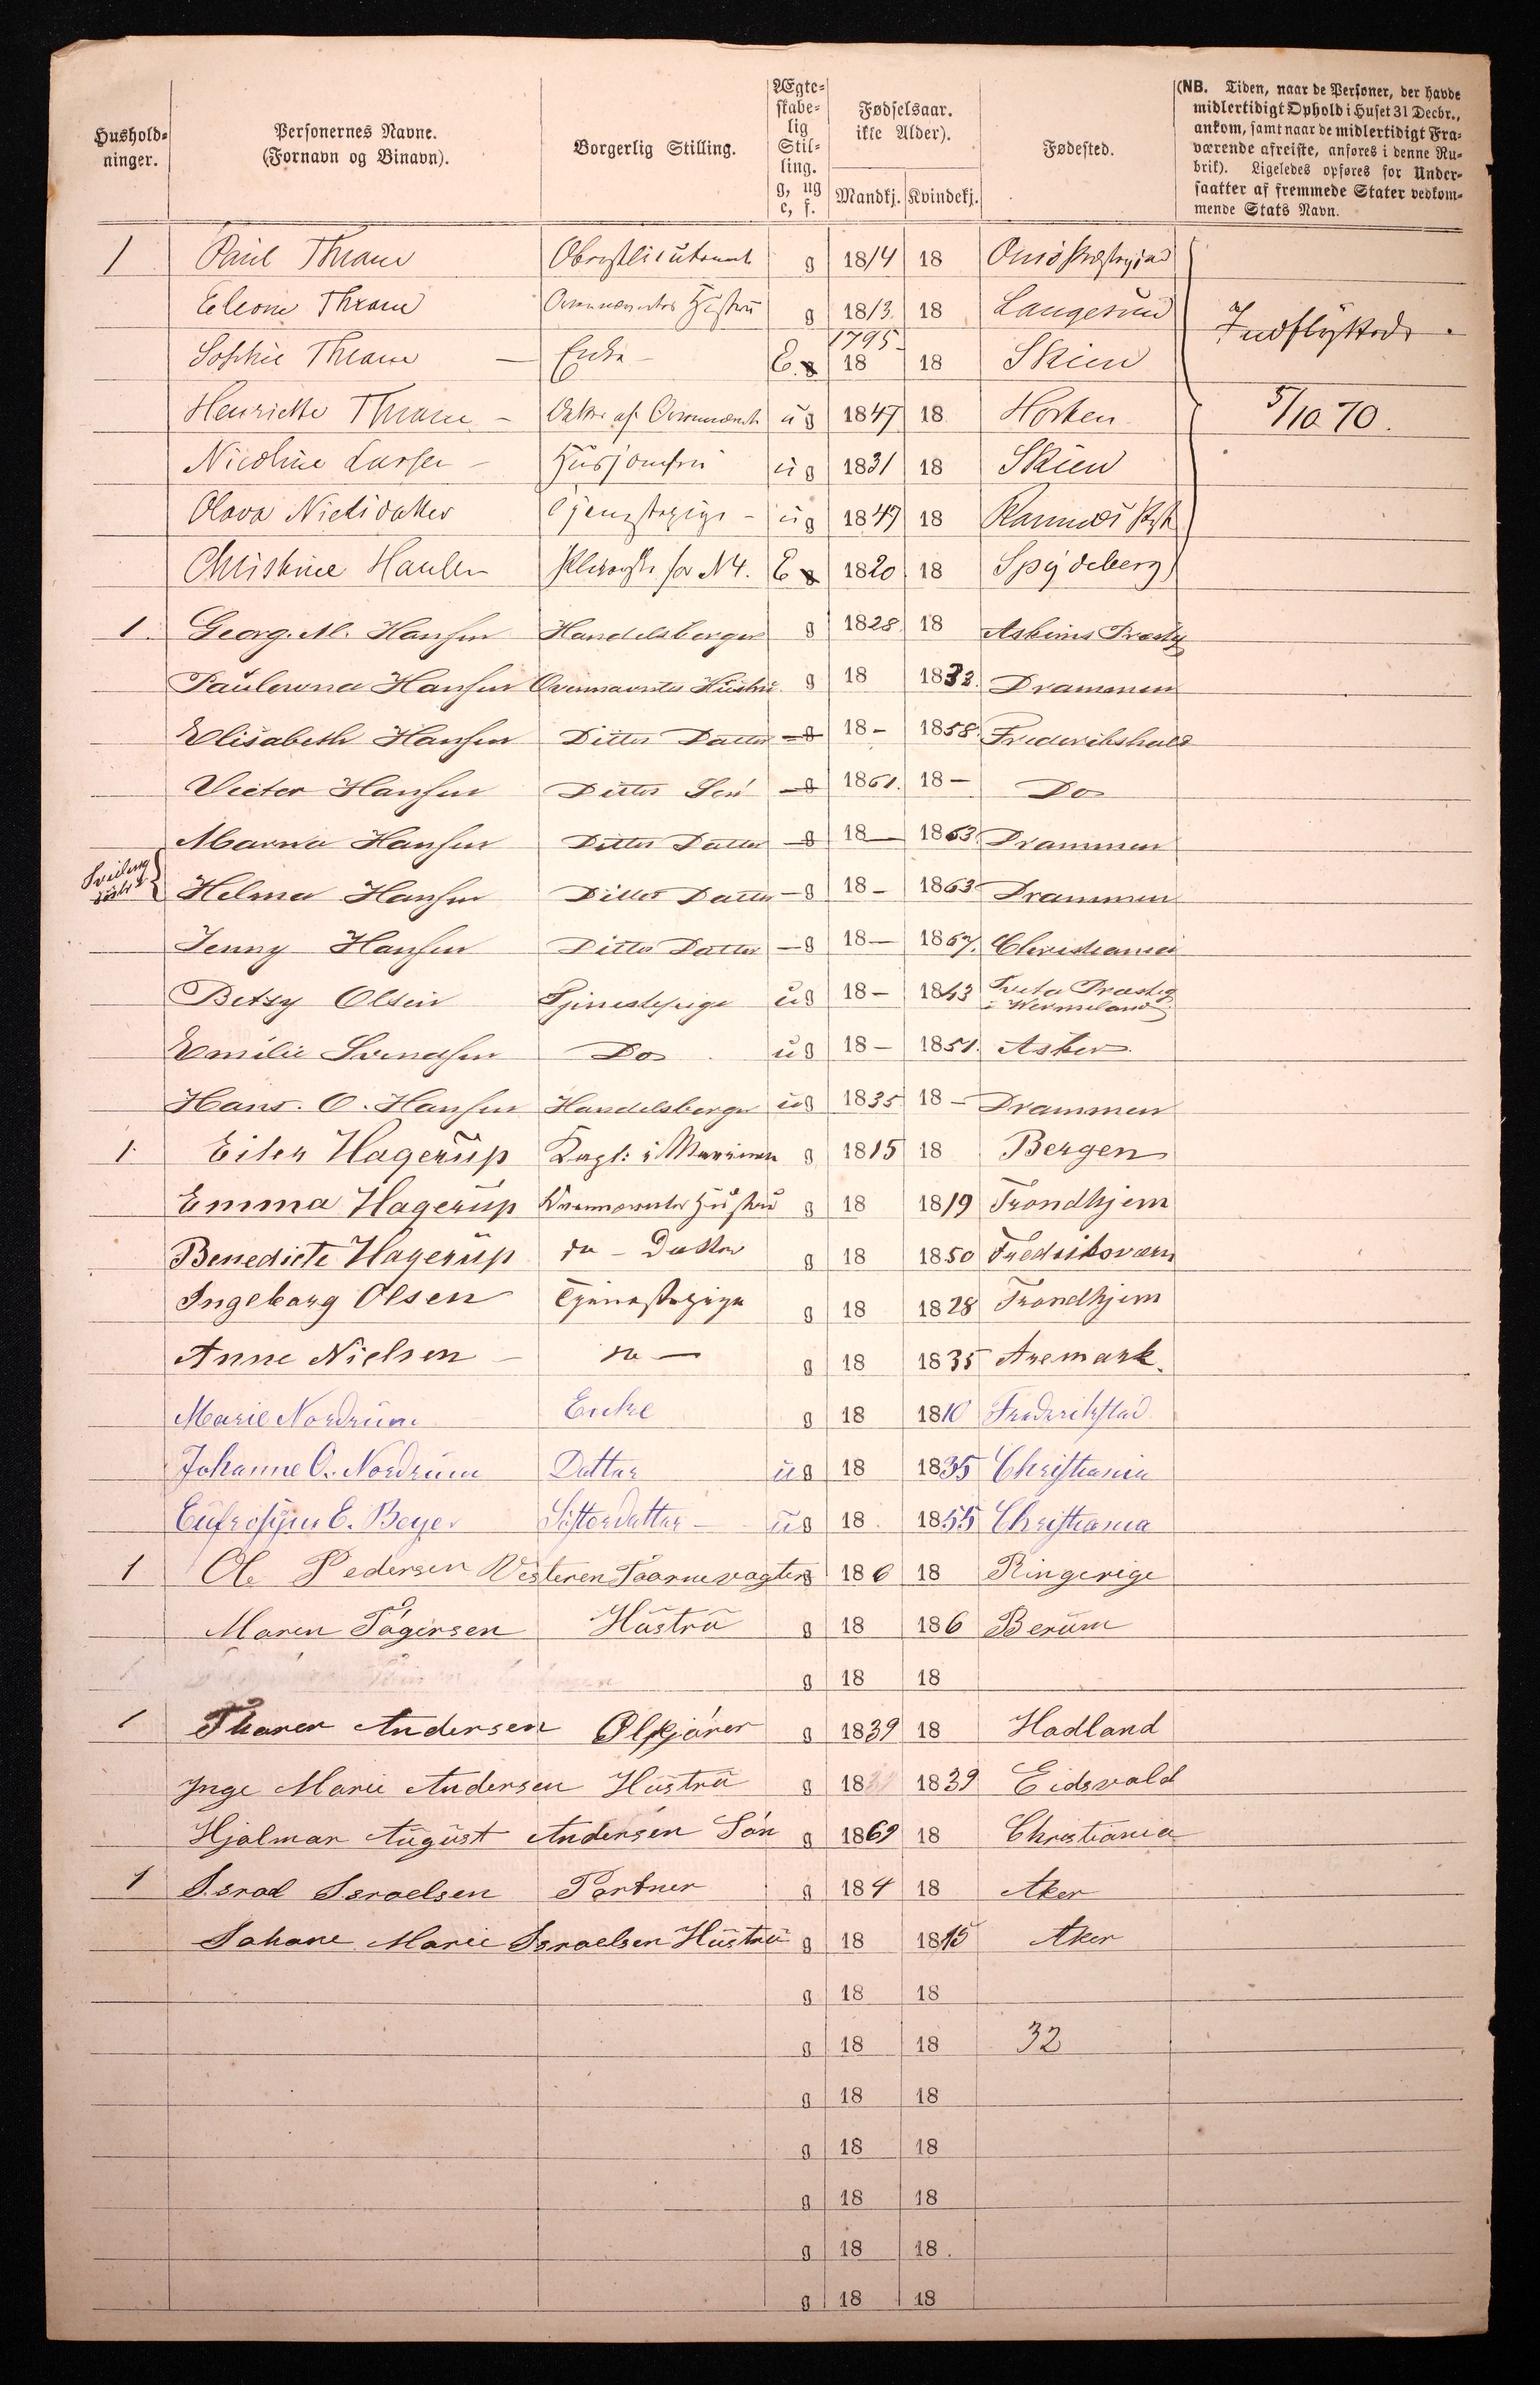 Hushold-
ninger.
Personernes Navne.
(Fornavn og Binavn).
Borgerlig Stilling.
Ægte-
skabe-
lig
Stil-
ling.
g, ug
e, f.
Fødselsaar.
ikke Alder).
Mandkj. Kvindekj.
Fødested.
(NB. Tiden, naar de Personer, der havde
midlertidigt Ophold i Huset 31 Decbr.,
ankom, samt naar de midlertidigt Fra-
værende afreiste, anføres i denne Ru-
brik). Ligeledes opføres for Under-
saatter af fremmede Stater vedkom-
mende Stats Navn.
1 Paul Thrane Oberstlieutenant g 1814 18
Eleone Thrane Hustru g 1813 18 Langesund
Sophie Thrane — Enke E. g 1795 18 18 Skien
Indflyttede
Henriette Thrane — Datter af ug 1847 18 Horten
5/10 70.
Nicoline Larsen — Husjomfru ug 1831 18 Skien
Olava Nielsdatter Tjenestepige — ug 1849 18
Christine for N4. E g 1820 18 Spydeberg
1. Georg. M. Hansen Handelsborger g 1828 18 Askims Præstg
Hansen Ovennævntes Hustru g 18 1833. Drammen
Elisabeth Hansen Dittos Datter g 18 - 1858. Frederikshald
Victor Hansen Dittos Søn g 1861. 18 - Do
Marna Hansen Dittos Datter g 18 — 1863. Drammen
Helma Hansen Dittos Datter g 18 - 1863 Drammen
Jenny Hansen Dittos Datter g 18 — 1867. Christiania
Betsy Olsen Tjenestepige ug 18 - 1843 Præstg
i Wermeland
Emilie Svendsen Do ug 18 - 1851. Asker
Hans. O. Hansen Handelsborger ug 1835 18 - Drammen
1. Eiler Hagerup Kapt: i Marinen g 1815 18 Bergen
Emma Hagerup Hustru g 18 1819 Trondhjem
Benedicte Hagerup do — Datter g 18 1850 Fredriksværn
Ingeborg Olsen Tjenestepige g 18 1828 Trondhjem
Anne Nielsen — do — g 18 1835 Aremark.
Marie Nordrum Enke g 18 1810 Frederikstad
Johanne O. Nordrum Datter ug 18 1835 Christiania
E. Beyer Søsterdatter — ug 18 1855 Christiania
1 Ole Pedersen Vesteren Taarnevagter g 18 6 18 Ringerige
Maren Hustru g 18 18 6 Berum
g 18 18
1 Andersen Ølkjører g 1839 18 Hadland
Inge Marie Andersen Hustru g 18 1839 Eidsvold
Hjalmar August Andersen Søn g 1869 18 Christiania
1 Israel Israelsen Portner g 18 4 18 Aker
Johane Marie Israelsen Hustru g 18 1815 Aker
g 18 18
g 18 18 32
g 18 18
g 18 18
g 18 18
g 18 18
g 18 18